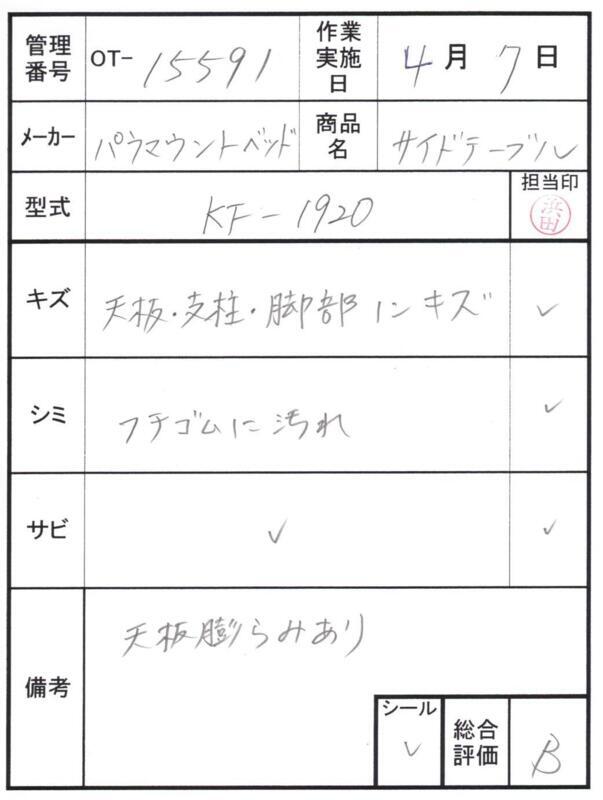 管理番号 OT-15591 作業実施日 4月7日
メーカー パラマウントベッド 商品名 サイドテーブル
型式 KF-1920 担当印 浜田
キズ 天板・支柱・脚部にキズ ✓
シミ フチゴムに汚れ ✓
サビ ✓ ✓
備考 天板膨らみあり
シール ✓ 総合評価 B